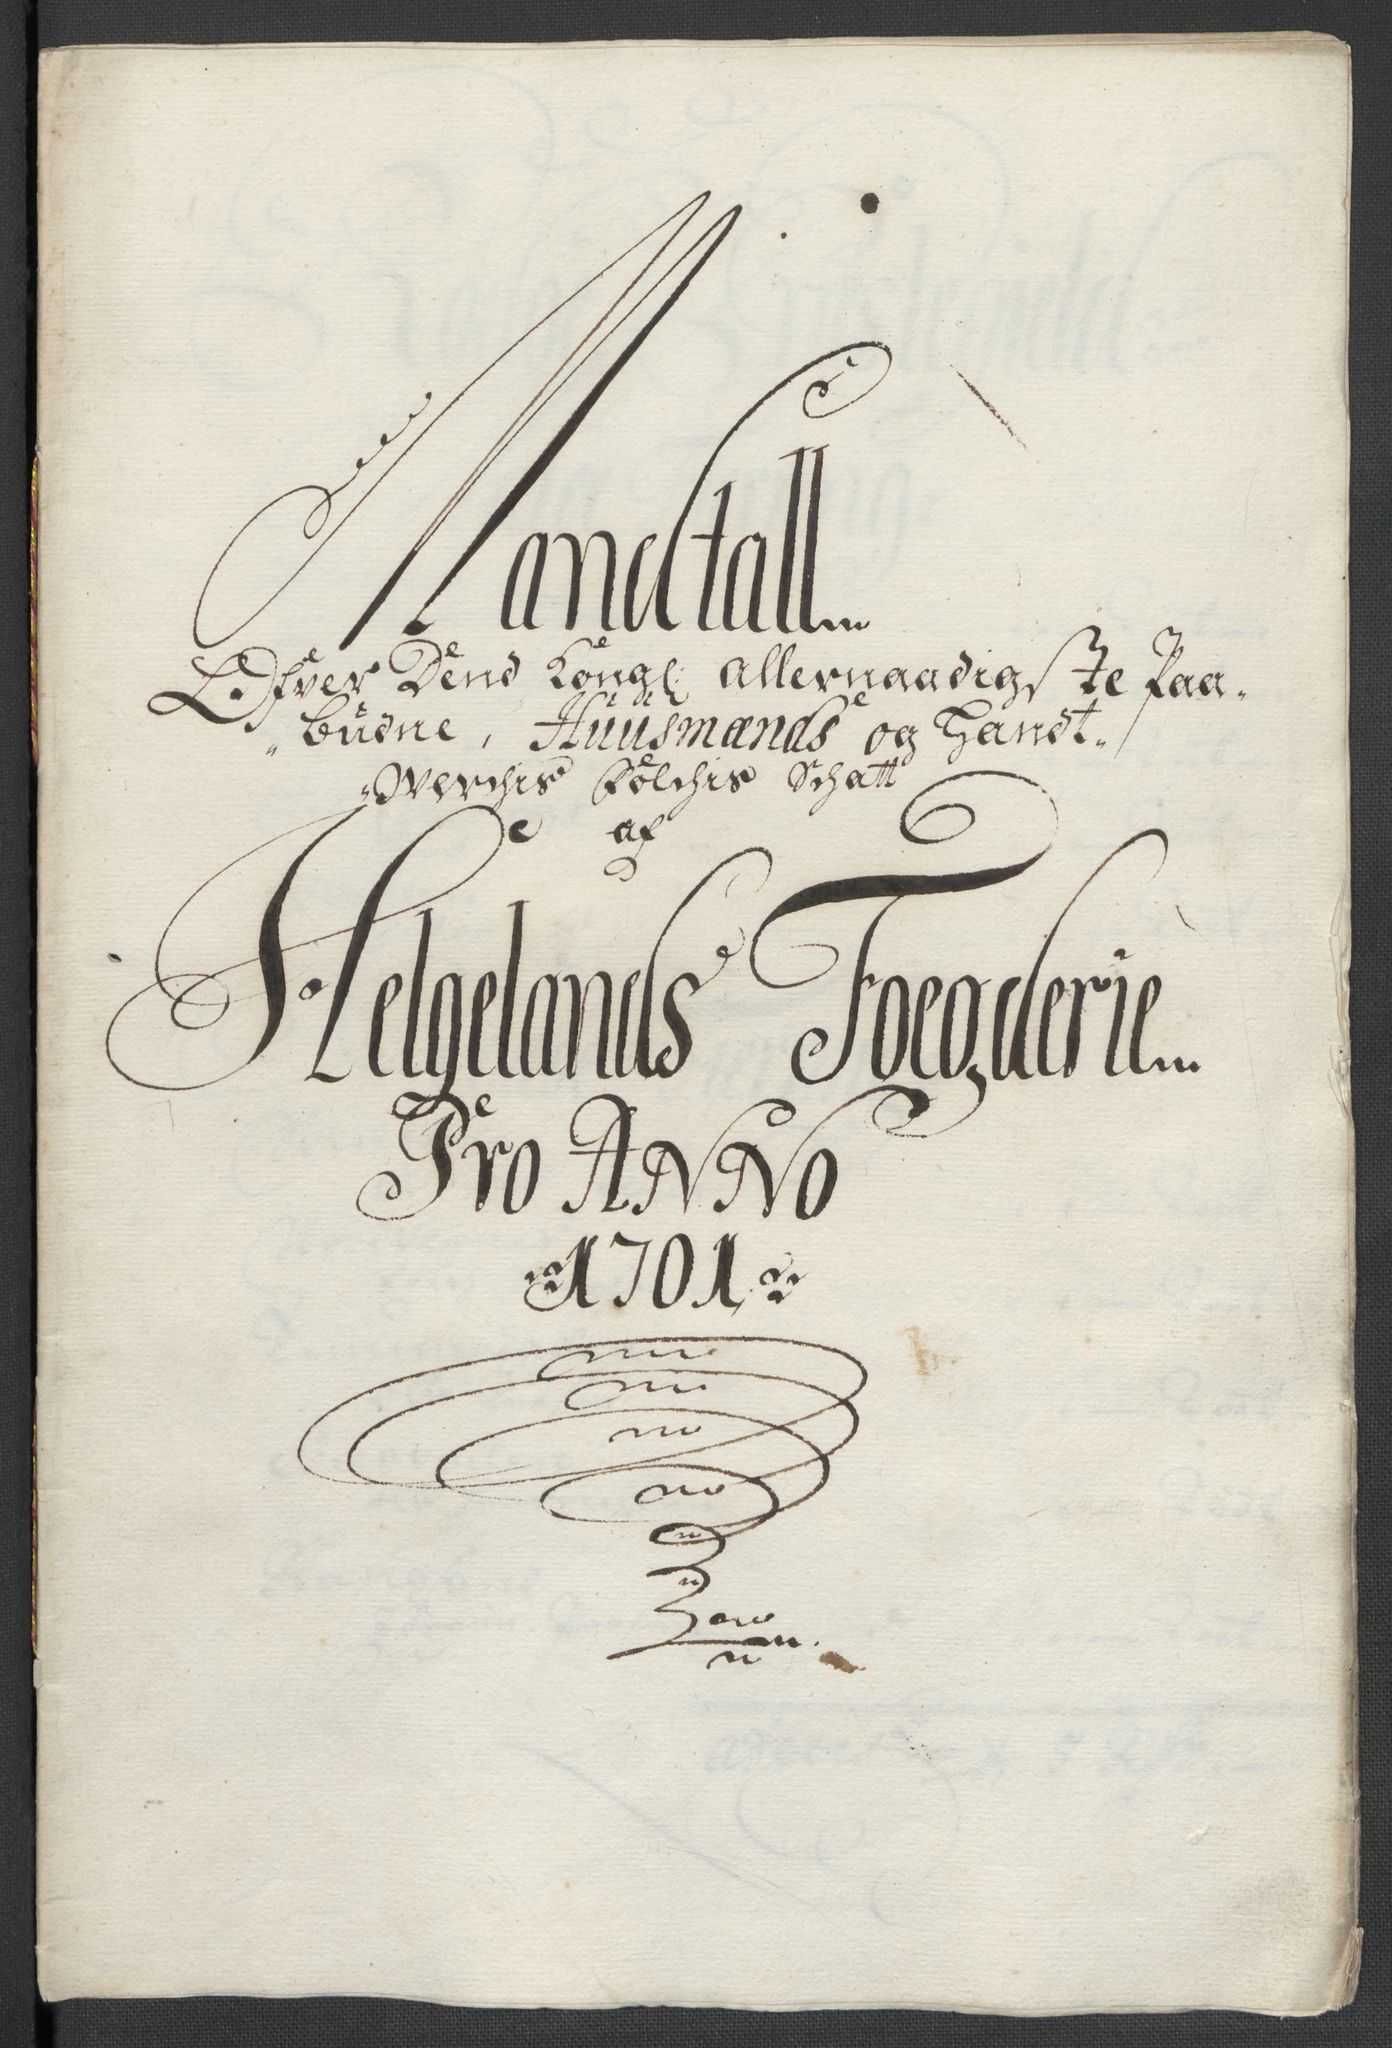 Mandtall
Ofver Dend Kongl: allernaadigste Paa-
budne, Huusmænds og Handt-
Werchis Folchis Schatt
af
Helgelands Foegderie
Pro ANNO
1701